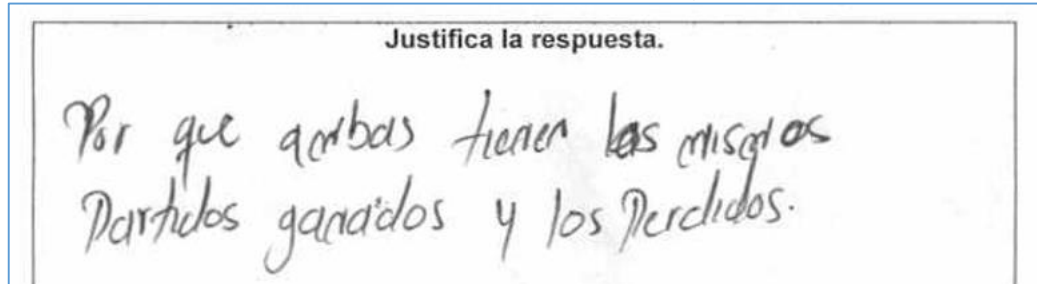 Justifica la respuesta.
Por que ambas tienen los mismos
Partidos ganados y los Perdidos.